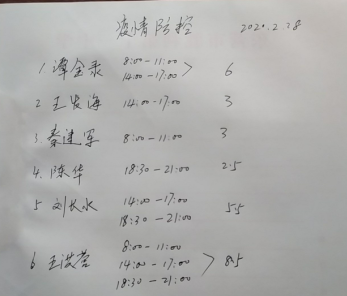 疫情防控 2020.2.28
1. 谭全录 8:00-11:00
14:00-17:00 > 6
2 王发海 14:00-17:00 3
3. 秦建军 8:00-11:00 3
4. 陈华 18:30-21:00 2.5
5 刘长水 14:00-17:00
18:30-21:00 5.5
6 王洪营 8:00-11:00
14:00-17:00 > 8.5
18:30-21:00